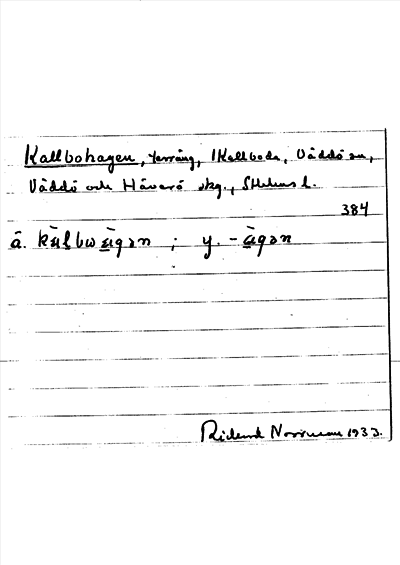 Kallbohagen, terräng, 1 Kallboda, Väddö sn,
Väddö och Häverö skg., Sthlms l.
384
ä. kàlbwàgən ; y. -àgən
Rickard Norrman 1933.